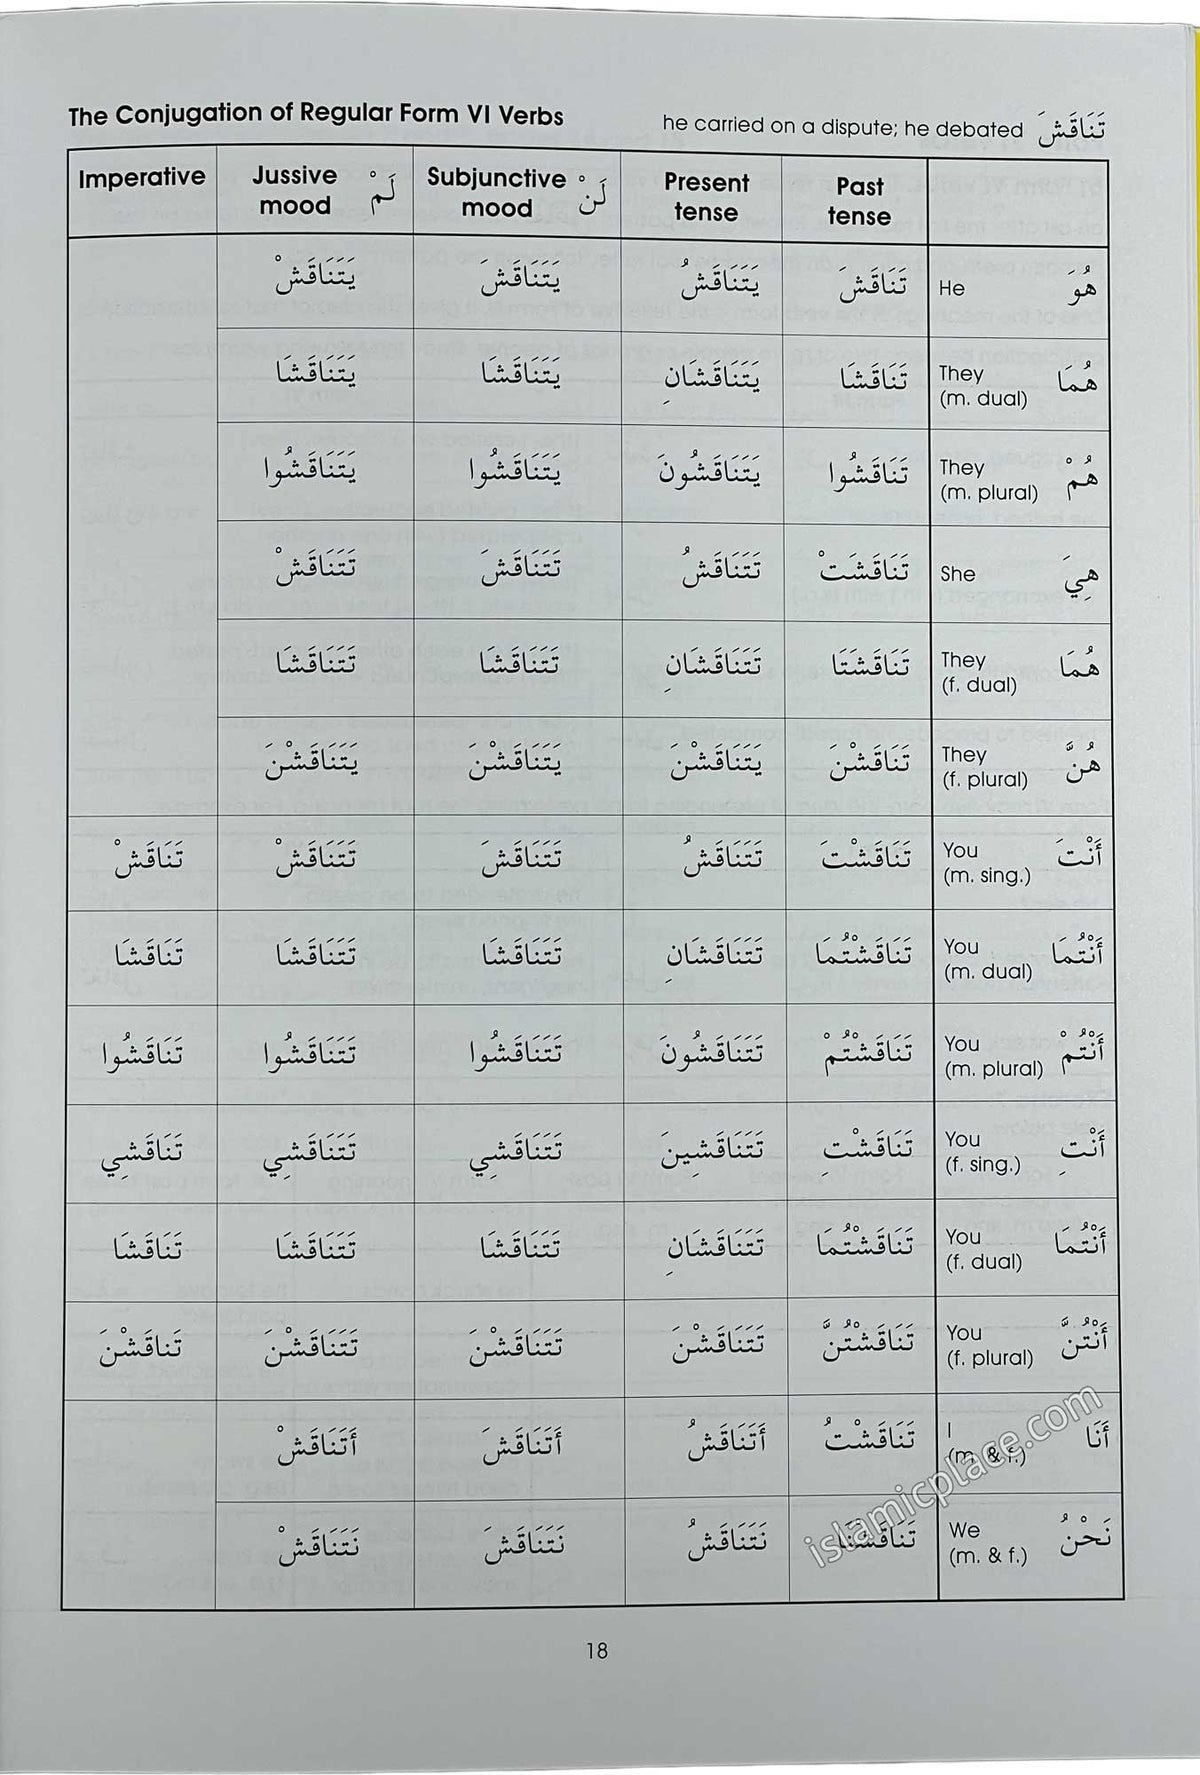 The Conjugation of Regular Form VI Verbs he carried on a dispute; he debated تَنَاقَشَ
Imperative Jussive mood لَمْ Subjunctive mood لَنْ Present tense Past tense
يَتَنَاقَشْ يَتَنَاقَشَ يَتَنَاقَشُ تَنَاقَشَ He هُوَ
يَتَنَاقَشَا يَتَنَاقَشَا يَتَنَاقَشَانِ تَنَاقَشَا They (m. dual) هُمَا
يَتَنَاقَشُوا يَتَنَاقَشُوا يَتَنَاقَشُونَ تَنَاقَشُوا They (m. plural) هُمْ
تَتَنَاقَشْ تَتَنَاقَشَ تَتَنَاقَشُ تَنَاقَشَتْ She هِيَ
تَتَنَاقَشَا تَتَنَاقَشَا تَتَنَاقَشَانِ تَنَاقَشَتَا They (f. dual) هُمَا
يَتَنَاقَشْنَ يَتَنَاقَشْنَ يَتَنَاقَشْنَ تَنَاقَشْنَ They (f. plural) هُنَّ
تَنَاقَشْ تَتَنَاقَشْ تَتَنَاقَشَ تَتَنَاقَشُ تَنَاقَشْتَ You (m. sing.) أَنْتَ
تَنَاقَشَا تَتَنَاقَشَا تَتَنَاقَشَا تَتَنَاقَشَانِ تَنَاقَشْتُمَا You (m. dual) أَنْتُمَا
تَنَاقَشُوا تَتَنَاقَشُوا تَتَنَاقَشُوا تَتَنَاقَشُونَ تَنَاقَشْتُمْ You (m. plural) أَنْتُمْ
تَنَاقَشِي تَتَنَاقَشِي تَتَنَاقَشِي تَتَنَاقَشِينَ تَنَاقَشْتِ You (f. sing.) أَنْتِ
تَنَاقَشَا تَتَنَاقَشَا تَتَنَاقَشَا تَتَنَاقَشَانِ تَنَاقَشْتُمَا You (f. dual) أَنْتُمَا
تَنَاقَشْنَ تَتَنَاقَشْنَ تَتَنَاقَشْنَ تَتَنَاقَشْنَ تَنَاقَشْتُنَّ You (f. plural) أَنْتُنَّ
أَتَنَاقَشْ أَتَنَاقَشَ أَتَنَاقَشُ تَنَاقَشْتُ I (m. & f.) أَنَا
نَتَنَاقَشْ نَتَنَاقَشَ نَتَنَاقَشُ تَنَاقَشْنَا We (m. & f.) نَحْنُ
islamicplace.com
18